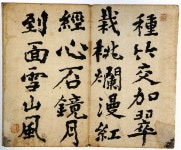 種竹交加翠
栽桃爛漫紅
經心石鏡月
到面雪山風